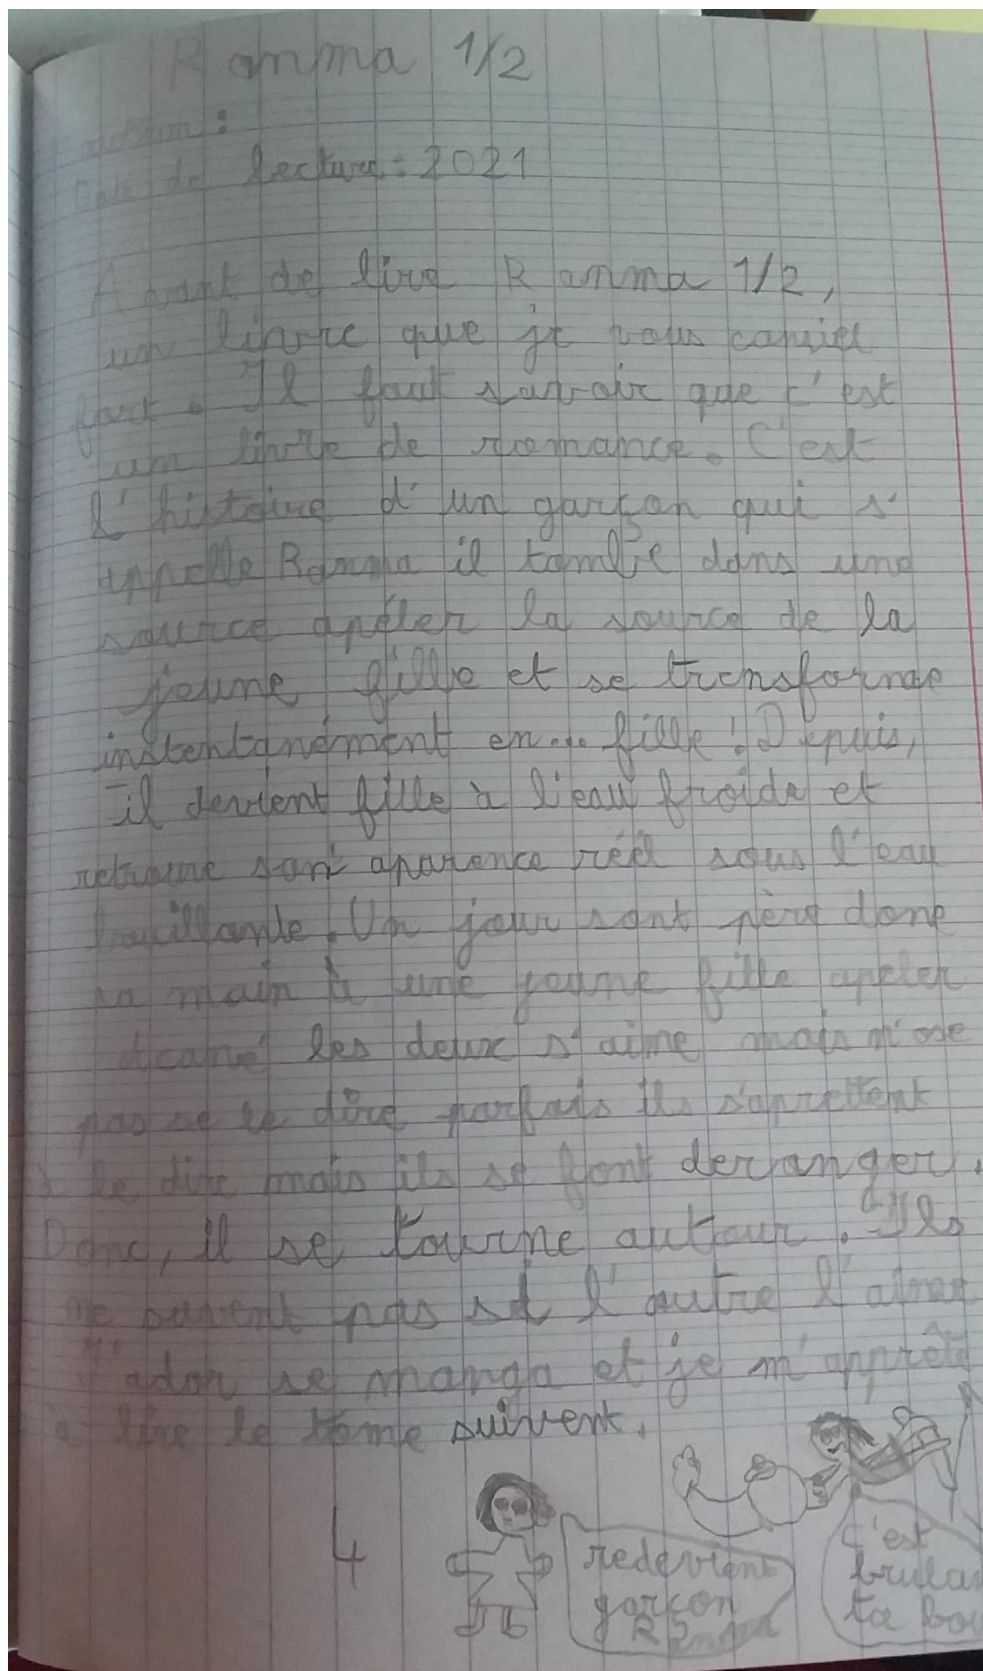 Ranma 1/2
auteur :
Date de lecture : 2021
Avant de lire Ranma 1/2,
un livre que je vous conseil
fort. Il faut savoir que c'est
un livre de romance. C'est
l'histoire d'un garçon qui s'
appelle Ranma il tombe dans une
source apeler la source de la
jeune fille et se transforme
instentanément en... fille ! Depuis,
il devient fille à l'eau froide et
retrouve son aparence réel sous l'eau
bouillante. Un jour sont père done
sa main à une jeune fille apeler
Acané les deux s'aime mais n'ose
pas se le dire parfois ils s'aprettent
à le dire mais ils se font deranger.
Donc, il se tourne autour. Ils
ne savent pas si l'autre l'aime
J'ador se manga et je m'apprête
à lire le tome suivent.
4
redevient
garçon
Ranma
c'est
brula
ta bou